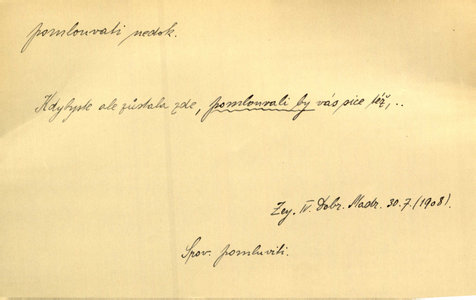 pomlouvati nedok.
Kdybyste ale zůstala zde, pomlouvali by vás sice též,..
Zey. IV. Dobr. Madr. 30.7.(1908).
Srov. pomluviti.